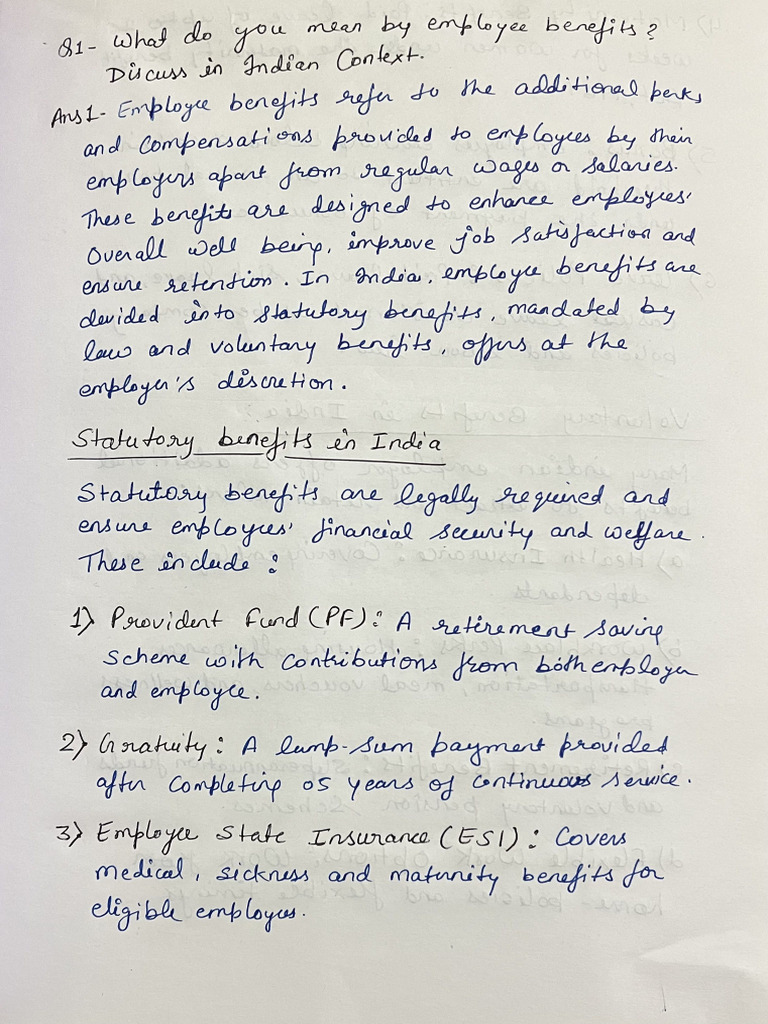 Q1- What do you mean by employee benefits?
Discuss in Indian Context.
Ans1- Employee benefits refer to the additional perks
and compensations provided to employees by their
employers apart from regular wages or salaries.
These benefits are designed to enhance employees'
Overall well being, improve job satisfaction and
ensure retention. In India, employee benefits are
devided into statutory benefits, mandated by
law and voluntary benefits, offers at the
employer's discretion.
Statutory benefits in India
Statutory benefits are legally required and
ensure employees' financial security and welfare.
These include:
1) Provident Fund (PF): A retirement saving
Scheme with contributions from both employer
and employee.
2) Gratuity: A lump-sum payment provided
after completing 05 years of continuous service.
3) Employee State Insurance (ESI): Covers
medical, sickness and maternity benefits for
eligible employees.